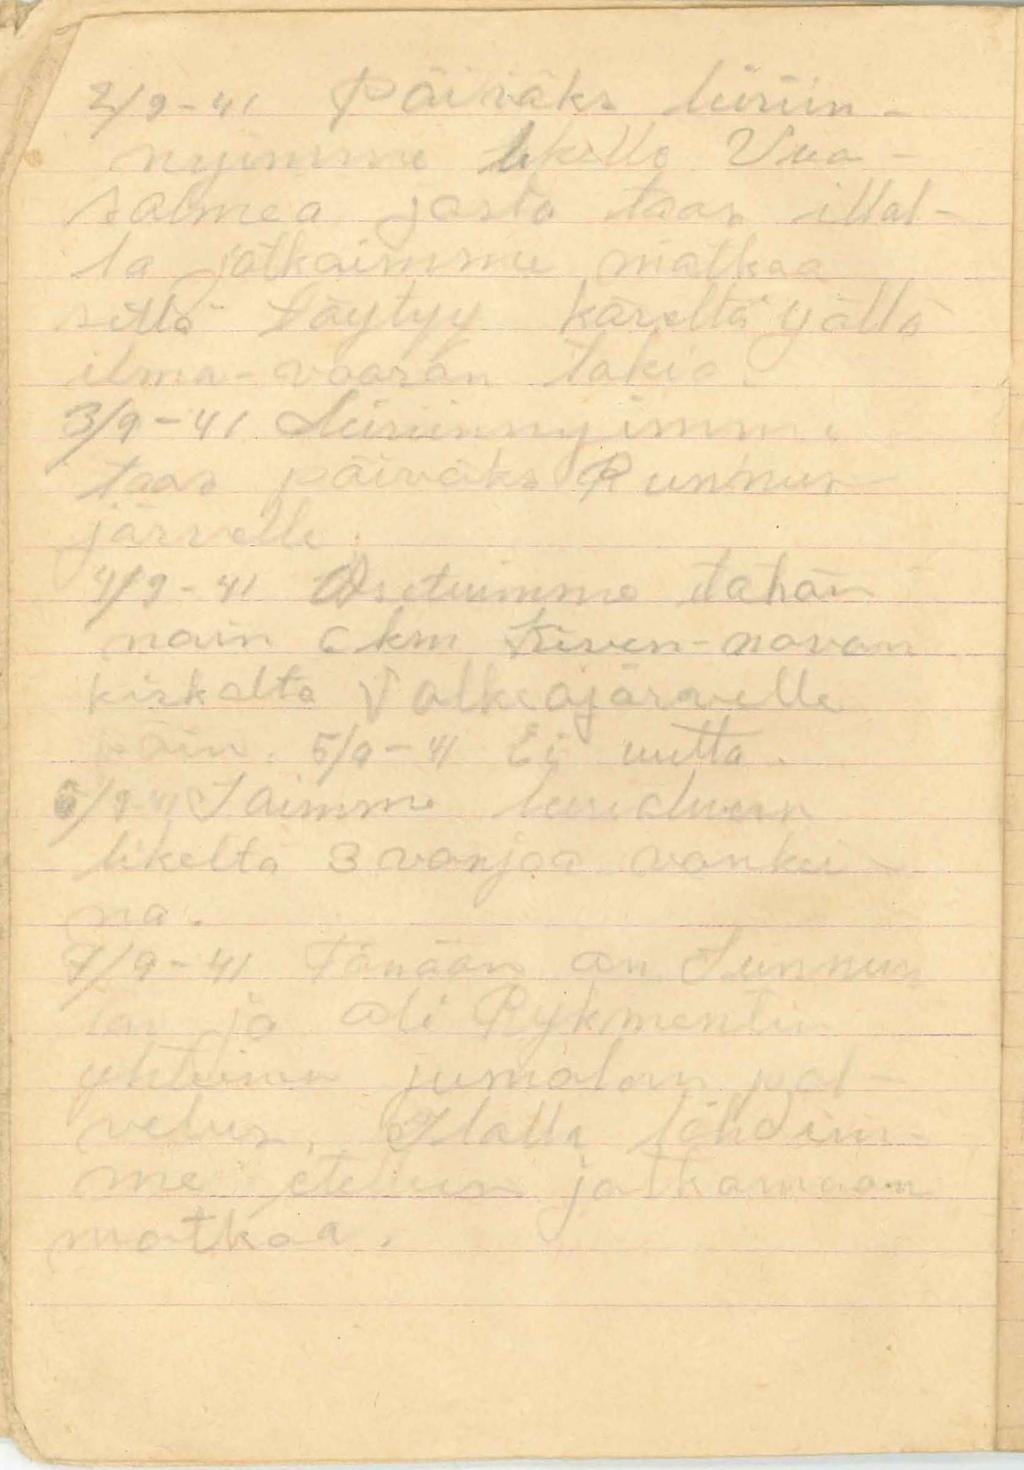 2/9-41 Päiväks leiriin-
nyimme likelle Vuo-
salmea josta taas illal-
la jatkaimme matkaa
sillä täytyy kävellä yöllä
ilma-vaaran takia.
3/9-41 Leiriinnyimme
taas päiväks Punnus
järvelle.
4/9-41 Asetuimme tähän
noin 6 km Kiven-navan
kirkolta Valkeajärvelle
päin. 5/9-41 Ei uutta.
6/9-41 Saimme leirialueen
likeltä 3 vanjaa vankei-
na.
7/9-41 Tänään on Sunnun
tai ja oli Rykmentin
yhteinen jumalan pal-
velus. Illalla lähdim-
me eteleen jatkamaan
matkaa.